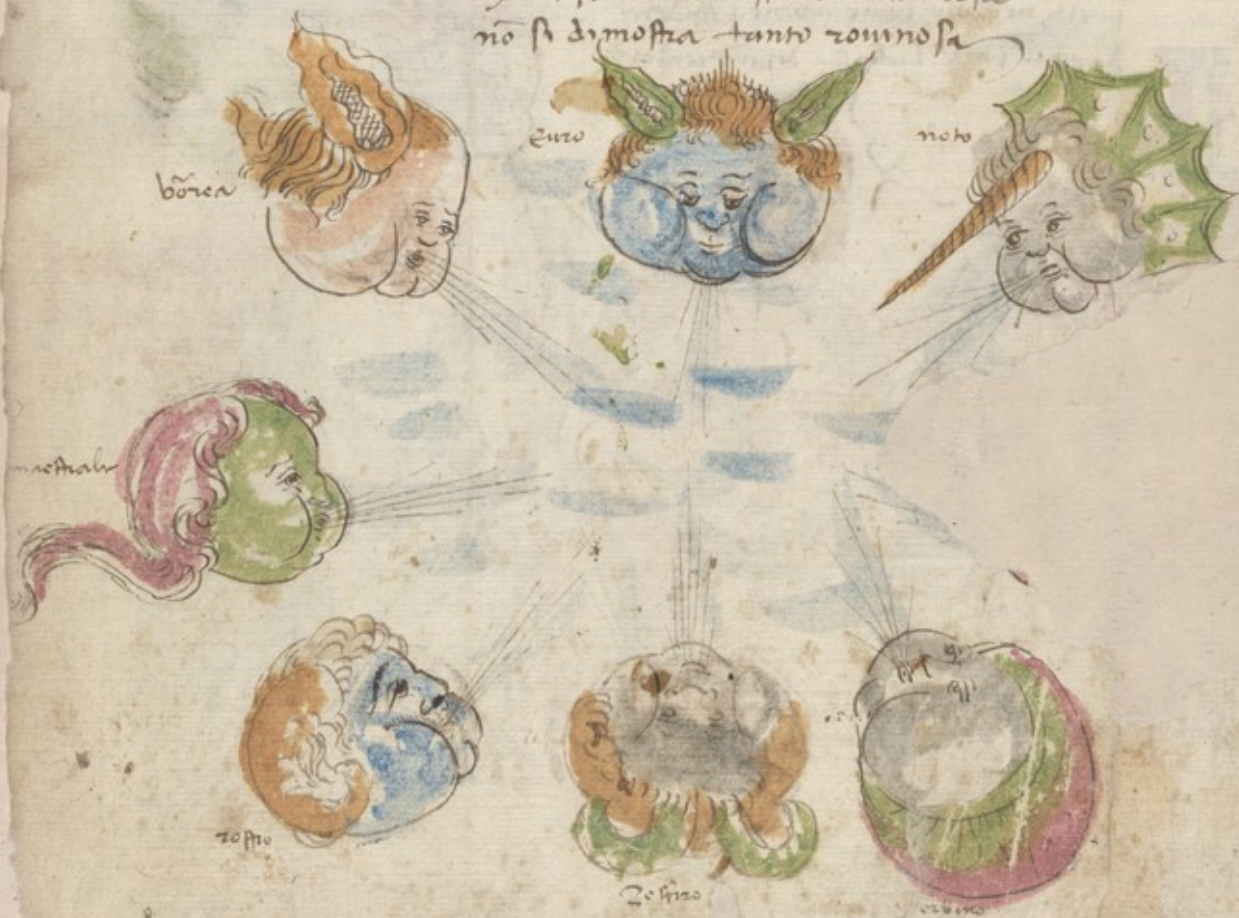 nō si dimostra tanto rovinosa
bōrea
Euro
noto
maestrale
rostro
Zefiro